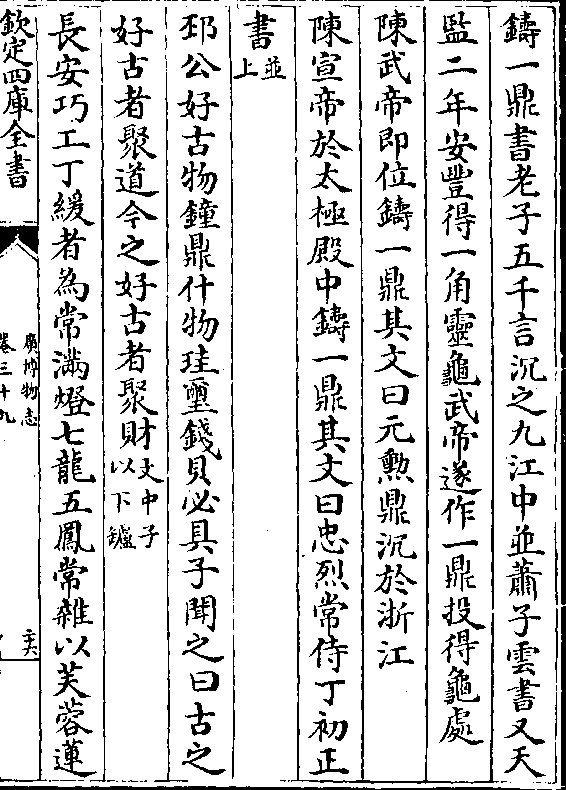 鑄一鼎書老子五千言沉之九江中並蕭子雲書又天
監二年安豐得一角靈龜武帝遂作一鼎投得龜處
陳武帝即位鑄一鼎其文曰元勲鼎沉於浙江
陳宣帝於太極殿中鑄一鼎其文曰忠烈常侍丁初正
書並上
邳公好古物鐘鼎什物珪璽錢貝必具子聞之曰古之
好古者聚道今之好古者聚財文中子以下鑪
長安巧工丁緩者為常滿燈七龍五鳳常雜以芙蓉蓮
欽定四庫全書
廣博物志
卷三十九